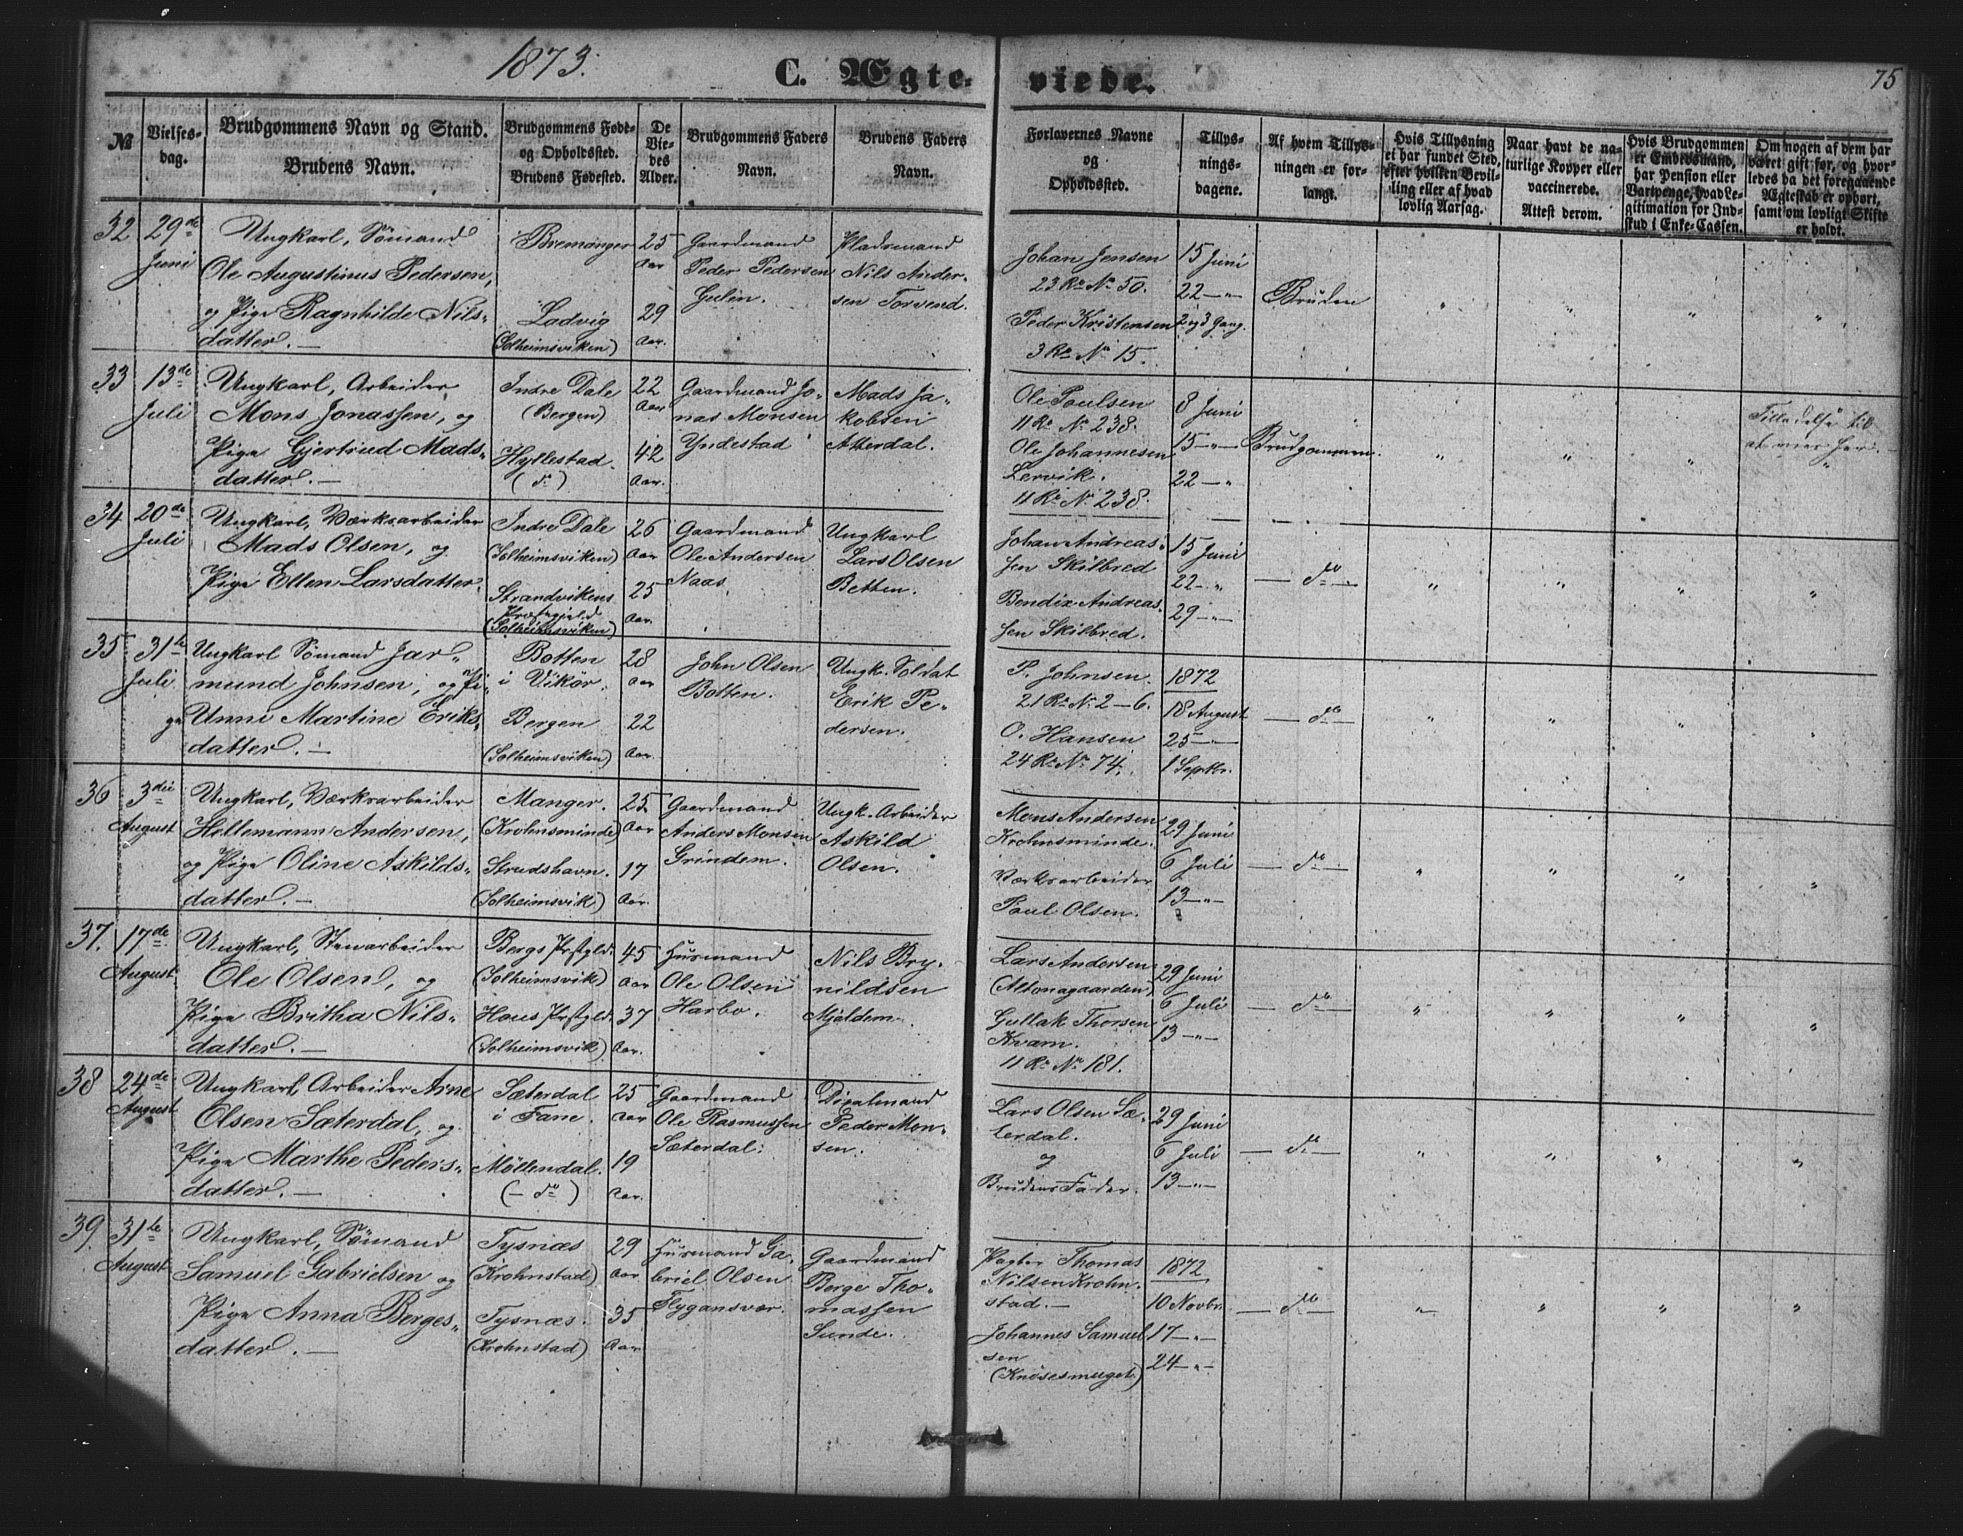 1873.
C. Ægte-
viede.
75
№
Vielses-
dag.
Brudgommens Navn og Stand.
Brudens Navn.
Brudgommens Føde-
og Opholdssted.
Brudens Fødested.
De
Vie-
des
Alder.
Brudgommens Faders
Navn.
Brudens Faders
Navn.
Forlovernes Navne
og
Opholdssted.
Tillys-
nings-
dagene.
Af hvem Tillys-
ningen er for-
langt.
Hvis Tillysning
ei har fundet Sted,
efter hvilken Bevil-
ling eller af hvad
lovlig Aarsag.
Naar havt de na-
turlige Kopper eller
vaccinerede.
Attest derom.
Hvis Brudgommen
er Embedsmand,
har Pension eller
Vartpenge, hvad Le-
gitimation for Ind-
skud i Enke-Cassen.
Om nogen af dem har
været gift før, og hvor-
ledes da det foregaaende
Ægteskab er ophørt,
samt om lovligt Skifte
er holdt.
32
29de
Juni
Ungkarl, Sømand
Ole Augustinus Pedersen,
og Pige Ragnhilde Nils-
datter. —
Bremanger
Ladvig
(Solheimsviken)
25
Aar
29
Aar.
Gaardmand
Peder Pedersen
Gulen.
Pladsmand
Nils Ander-
sen Torvend.
Johan Jensen
23 Ro No 50.
Peder Kristensen
3 Ro No 15.
15 Juni
22 — "
2 og 3 Gang.
Bruden
" " " "
33
13de
Juli
Ungkarl, Arbeider
Mons Jonassen, og
Pige Gjertrud Mads-
datter. —
Indre Dale
(Bergen)
Hyllestad.
(do)
22
Aar
42
Aar.
Gaardmand Jo-
nas Monsen
Yndestad
Mads Ja-
kobsen
Atterdal.
Ole Poulsen
11 Ro No 238.
Ole Johannesen
Lervik.
11 Ro No 238.
8 Juni
15 — "
22 — "
Brudgommen.
" " "
Tilladelse til
at vies her.
"
34
20de
Juli
Ungkarl, Værksarbeider
Mads Olsen, og
Pige Ellen Larsdatter.
Indre Dale
(Solheimsviken)
Strandvikens
Præstegjeld
(Solheimsviken)
26
Aar
25
Aar.
Gaardmand
Ole Andersen
Naas.
Ungkarl
Lars Olsen
Betten.
Johan Andreas-
sen Skilbred
Bendix Andreas-
sen Skilbred.
15 Juni
22 — "
29 — "
— do —
" " " "
35
31te
Juli
Ungkarl Sømand Jar-
mund Johnsen, og Pi-
ge Unni Martine Eriks-
datter. —
Botten
i Vikør.
Bergen
(Solheimsviken)
28
Aar
22
Aar.
John Olsen
Botten.
Ungk. Soldat
Erik Pe-
dersen.
P. Johnsen.
21 Ro No 2 — 6.
O. Hansen
24 Ro No 74.
1872
18 August
25 —
1 Septbr.
— do —
" " " "
36
3die
August
Ungkarl, Værksarbeider
Hellemann Andersen,
og Pige Oline Askilds-
datter. —
Manger.
(Krohnsminde)
Strudshavn.
(Solheimsvik.)
25
Aar
17
Aar.
Gaardmand
Anders Monsen
Grindem.
Ungk. Arbeider
Askild
Olsen.
Mons Andersen
Krohnsminde.
Værksarbeider
Poul Olsen.
29 Juni
6 Juli
13 — "
— do —
" " " "
37.
17de
August
Ungkarl, Stenarbeider
Ole Olsen, og
Pige Britha Nils-
datter. —
Bergs Prstgld.
(Solheimsvik)
Hous Prstgld.
(Solheimsvik)
45
Aar
37
Aar.
Husmand
Ole Olsen
Harbo.
Nils Bry-
nildsen
Mjeldem.
Lars Andersen
(Altonagaarden)
Gullak Thorsen
Kvam.
11 Ro No 181.
29 Juni
6 Juli
13 — "
— do —
" " " "
38
24de
August
Ungkarl, Arbeider Arne
Olsen Sæterdal, og
Pige Marthe Peders-
datter. —
Sæterdal
i Fane.
Møllendal.
(— do)
25
Aar
19
Aar.
Gaardmand
Ole Rasmussen
Sæterdal.
Peder Mon-
sen.
Lars Olsen Sæ-
terdal.
og
Brudens Fader.
29 Juni
6 Juli
13 — "
— do —
" " " "
39.
31te
August
Ungkarl, Sømand
Samuel Gabrielsen og
Pige Anna Berges-
datter. —
Tysnæs
(Krohnstad)
Tysnæs.
(Krohnstad)
29
Aar
35
Aar
Husmand Ga-
briel Olsen
Flygansvær.
Gaardmand
Berge Tho-
massen
Sunde.
Pagter Thomas
Nilsen Krohn-
stad. —
Johannes Samuel-
sen
(Knøsesmuget)
1872
10 Novbr.
17 — "
24 — "
— do —
" " " "